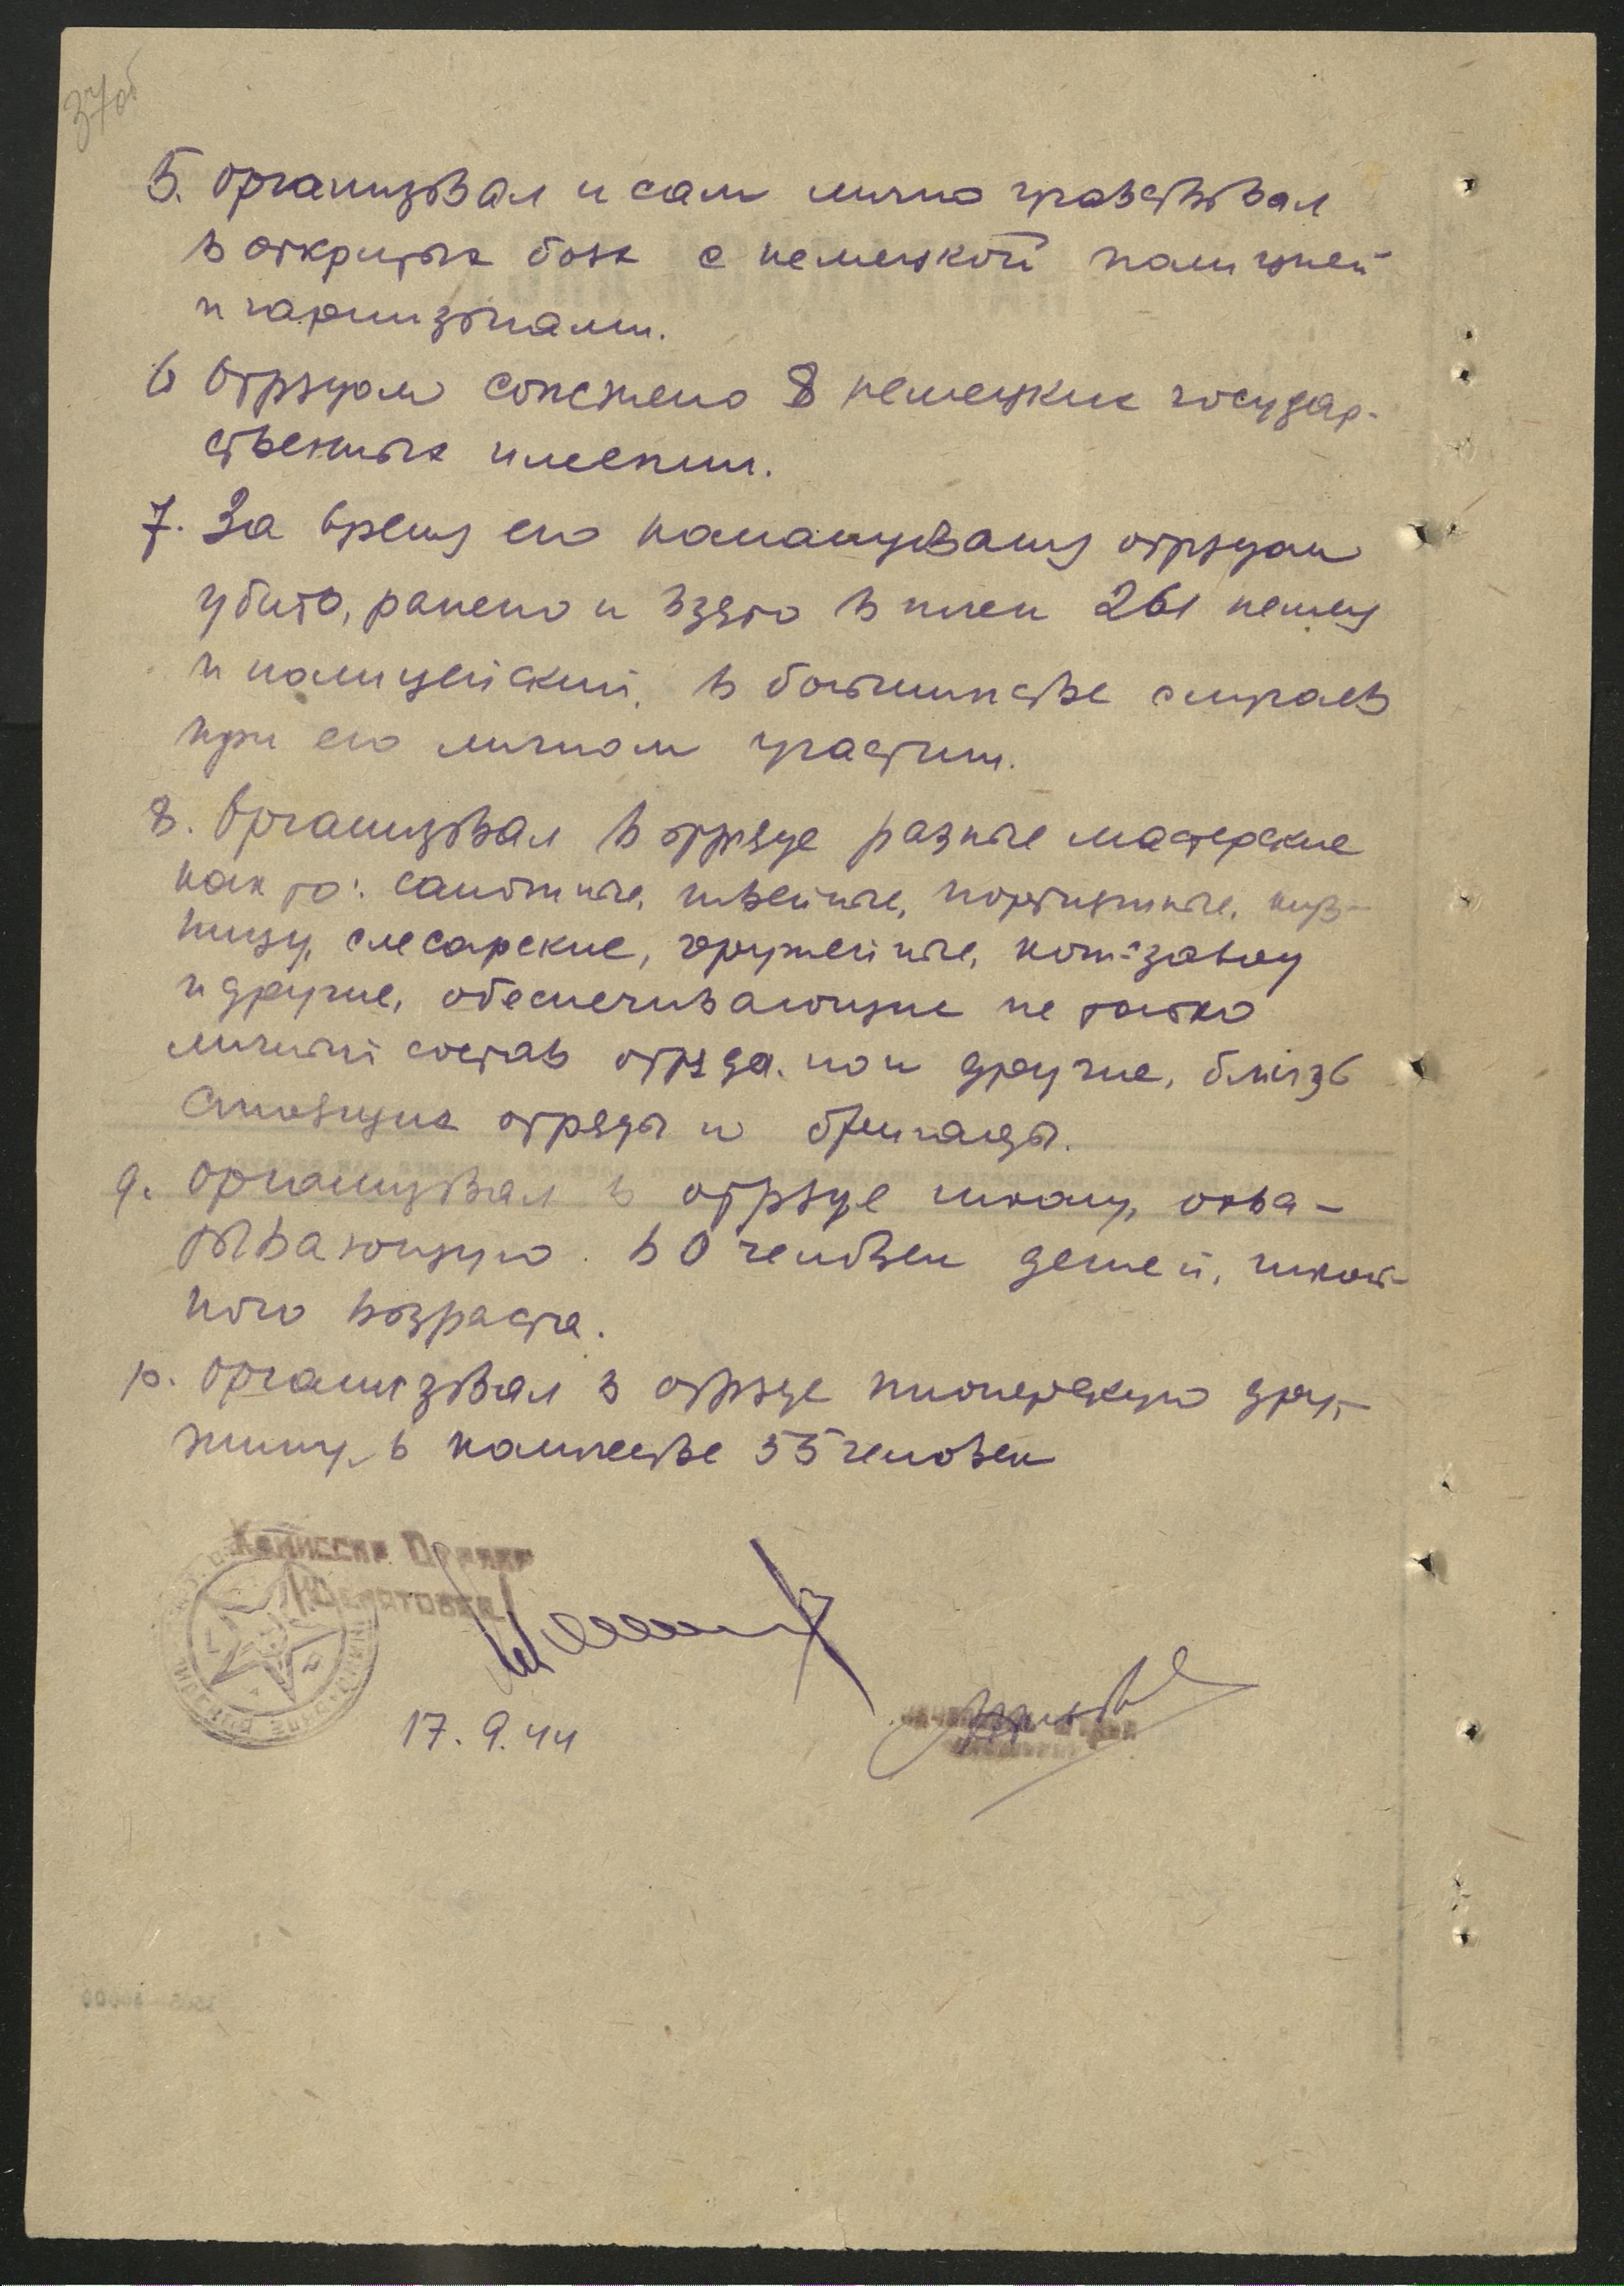 37об
5. Организовал и сам лично учавствовал
в открытых боях с немецкой полицией
и гарнизонами.
6 Отрядом сожжено 8 немецких государ-
ственных имений.
7. За время его командования отрядом
убито, ранено и взято в плен 261 немец
и полицейский, в большинстве случаев
при его личном участии.
8. Организовал в отряде разные мастерские
как то: сапожные, швейные, портняжные, куз-
ницу, слесарские, оружейные, кож-завод
и другие, обеспечивающие не только
личный состав отряда, но и другие, близь
стоящих отряды и бригады.
9. Организовал в отряде школу, охва-
тывающую 60 человек детей, школь-
ного возраста.
10. Организовал в отряде пионерскую дру-
жину, в количестве 55 человек
Комиссар Отряда
17.9.44
Начальник штаба